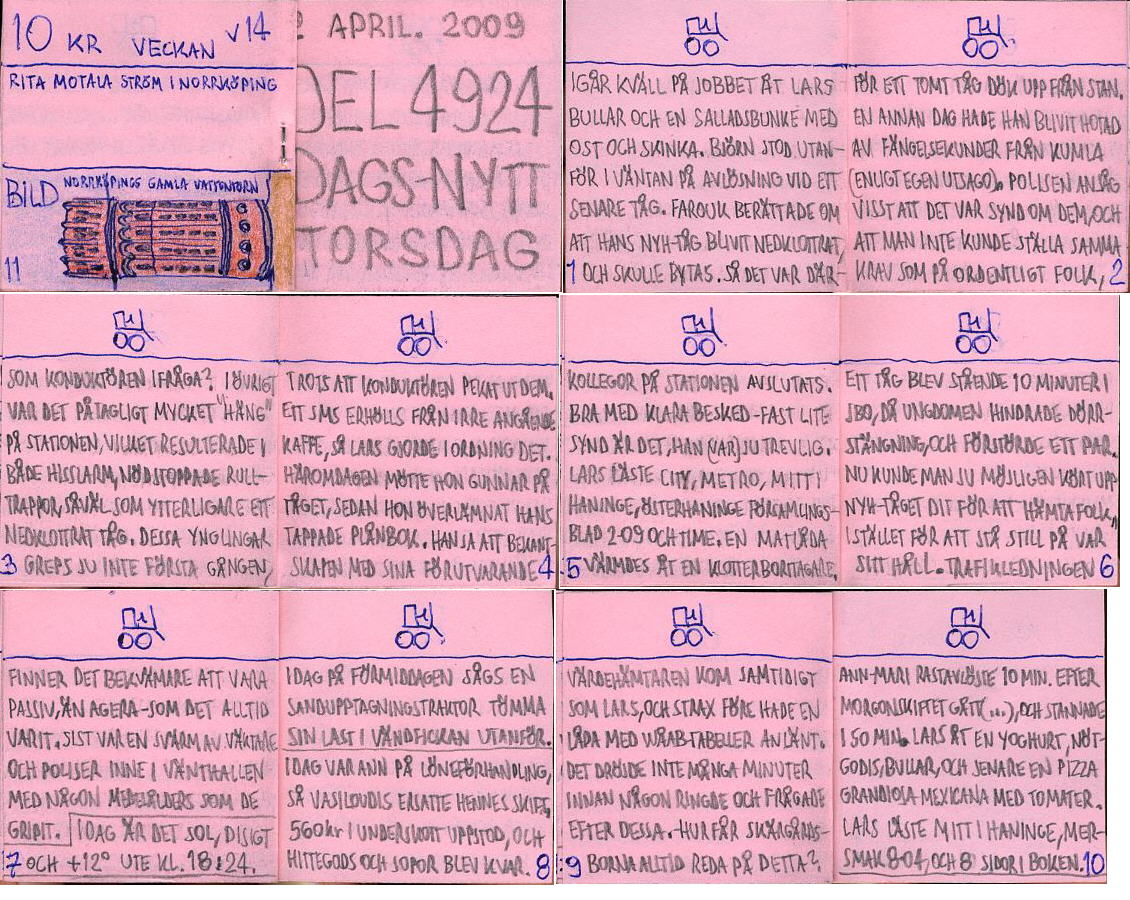 10 KR VECKAN V14
RITA MOTALA STRÖM I NORRKÖPING
BILD NORRKÖPINGS GAMLA VATTENTORN
11
2 APRIL. 2009
DEL 4924
DAGS-NYTT
TORSDAG
IGÅR KVÄLL PÅ JOBBET ÅT LARS
BULLAR OCH EN SALLADSBUNKE MED
OST OCH SKINKA. BJÖRN STOD UTAN-
FÖR I VÄNTAN PÅ AVLÖSNING VID ETT
SENARE TÅG. FAROUK BERÄTTADE OM
ATT HANS NYH-TÅG BLIVIT NEDKLOTTRAT,
1 OCH SKULLE BYTAS. SÅ DET VAR DÄR-
FÖR ETT TOMT TÅG DÖK UPP FRÅN STAN.
EN ANNAN DAG HADE HAN BLIVIT HOTAD
AV FÄNGELSEKUNDER FRÅN KUMLA
(ENLIGT EGEN UTSAGO). POLISEN ANSÅG
VISST ATT DET VAR SYND OM DEM, OCH
ATT MAN INTE KUNDE STÄLLA SAMMA
KRAV SOM PÅ ORDENTLIGT FOLK, 2
SOM KONDUKTÖREN IFRÅGA? I ÖVRIGT
VAR DET PÅTAGLIGT MYCKET "HÄNG"
PÅ STATIONEN, VILKET RESULTERADE I
BÅDE HISSLARM, NÖDSTOPPADE RULL-
TRAPPOR, SÅVÄL SOM YTTERLIGARE ETT
NEDKLOTTRAT TÅG. DESSA YNGLINGAR
3 GREPS JU INTE FÖRSTA GÅNGEN,
TROTS ATT KONDUKTÖREN PEKAT UT DEM.
ETT SMS ERHÖLLS FRÅN IRRE ANGÅENDE
KAFFE, SÅ LARS GJORDE I ORDNING DET.
HÄROMDAGEN MÖTTE HON GUNNAR PÅ
TÅGET, SEDAN HON ÖVERLÄMNAT HANS
TAPPADE PLÅNBOK. HAN SA ATT BEKANT-
SKAPEN MED SINA FÖRUTVARANDE 4
KOLLEGOR PÅ STATIONEN AVSLUTATS.
BRA MED KLARA BESKED - FAST LITE
SYND ÄR DET, HAN (VAR) JU TREVLIG.
LARS LÄSTE CITY, METRO, MITT I
HANINGE, ÖSTERHANINGE FÖRSAMLINGS-
BLAD 2-09 OCH TIME. EN MATLÅDA
5 VÄRMDES ÅT EN KLOTTERBORTTAGARE.
ETT TÅG BLEV STÅENDE 10 MINUTER I
JBO, DÅ UNGDOMEN HINDRADE DÖRR-
STÄNGNING, OCH FÖRSTÖRDE ETT PAR.
NU KUNDE MAN JU MÖJLIGEN KÖRT UPP
NYH-TÅGET DIT FÖR ATT HÄMTA FOLK,
ISTÄLLET FÖR ATT STÅ STILL PÅ VAR
SITT HÅLL. TRAFIKLEDNINGEN 6
FINNER DET BEKVÄMARE ATT VARA
PASSIV, ÄN AGERA - SOM DET ALLTID
VARIT. SIST VAR EN SVÄRM AV VÄKTARE
OCH POLISER INNE I VÄNTHALLEN
MED NÅGON MEDELÅLDERS SOM DE
GRIPIT. IDAG ÄR DET SOL, DISIGT
7 OCH +12° UTE KL. 18:24.
IDAG PÅ FÖRMIDDAGEN SÅGS EN
SANDUPPTAGNINGSTRAKTOR TÖMMA
SIN LAST I VÄNDFICKAN UTANFÖR.
IDAG VAR ANN PÅ LÖNEFÖRHANDLING,
SÅ VASILOUDIS ERSATTE HENNES SKIFT,
560 kr I UNDERSKOTT UPPSTOD, OCH
HITTEGODS OCH SOPOR BLEV KVAR. 8
VÄRDEHÄMTAREN KOM SAMTIDIGT
SOM LARS, OCH STRAX FÖRE HADE EN
LÅDA MED WÅAB-TABELLER ANLÄNT.
DET DRÖJDE INTE MÅNGA MINUTER
INNAN NÅGON RINGDE OCH FRÅGADE
EFTER DESSA. - HUR FÅR SKÄRGÅRDS-
9 BORNA ALLTID REDA PÅ DETTA?
ANN-MARI RASTAVLÖSTE 10 MIN. EFTER
MORGONSKIFTET GÅTT (...), OCH STANNADE
I 50 MIN. LARS ÅT EN YOGHURT, NÖT-
GODIS, BULLAR, OCH SENARE EN PIZZA
GRANDIOLA MEXICANA MED TOMATER.
LARS LÄSTE MITT I HANINGE, MER-
SMAK 8-04, OCH 8 SIDOR I BOKEN. 10